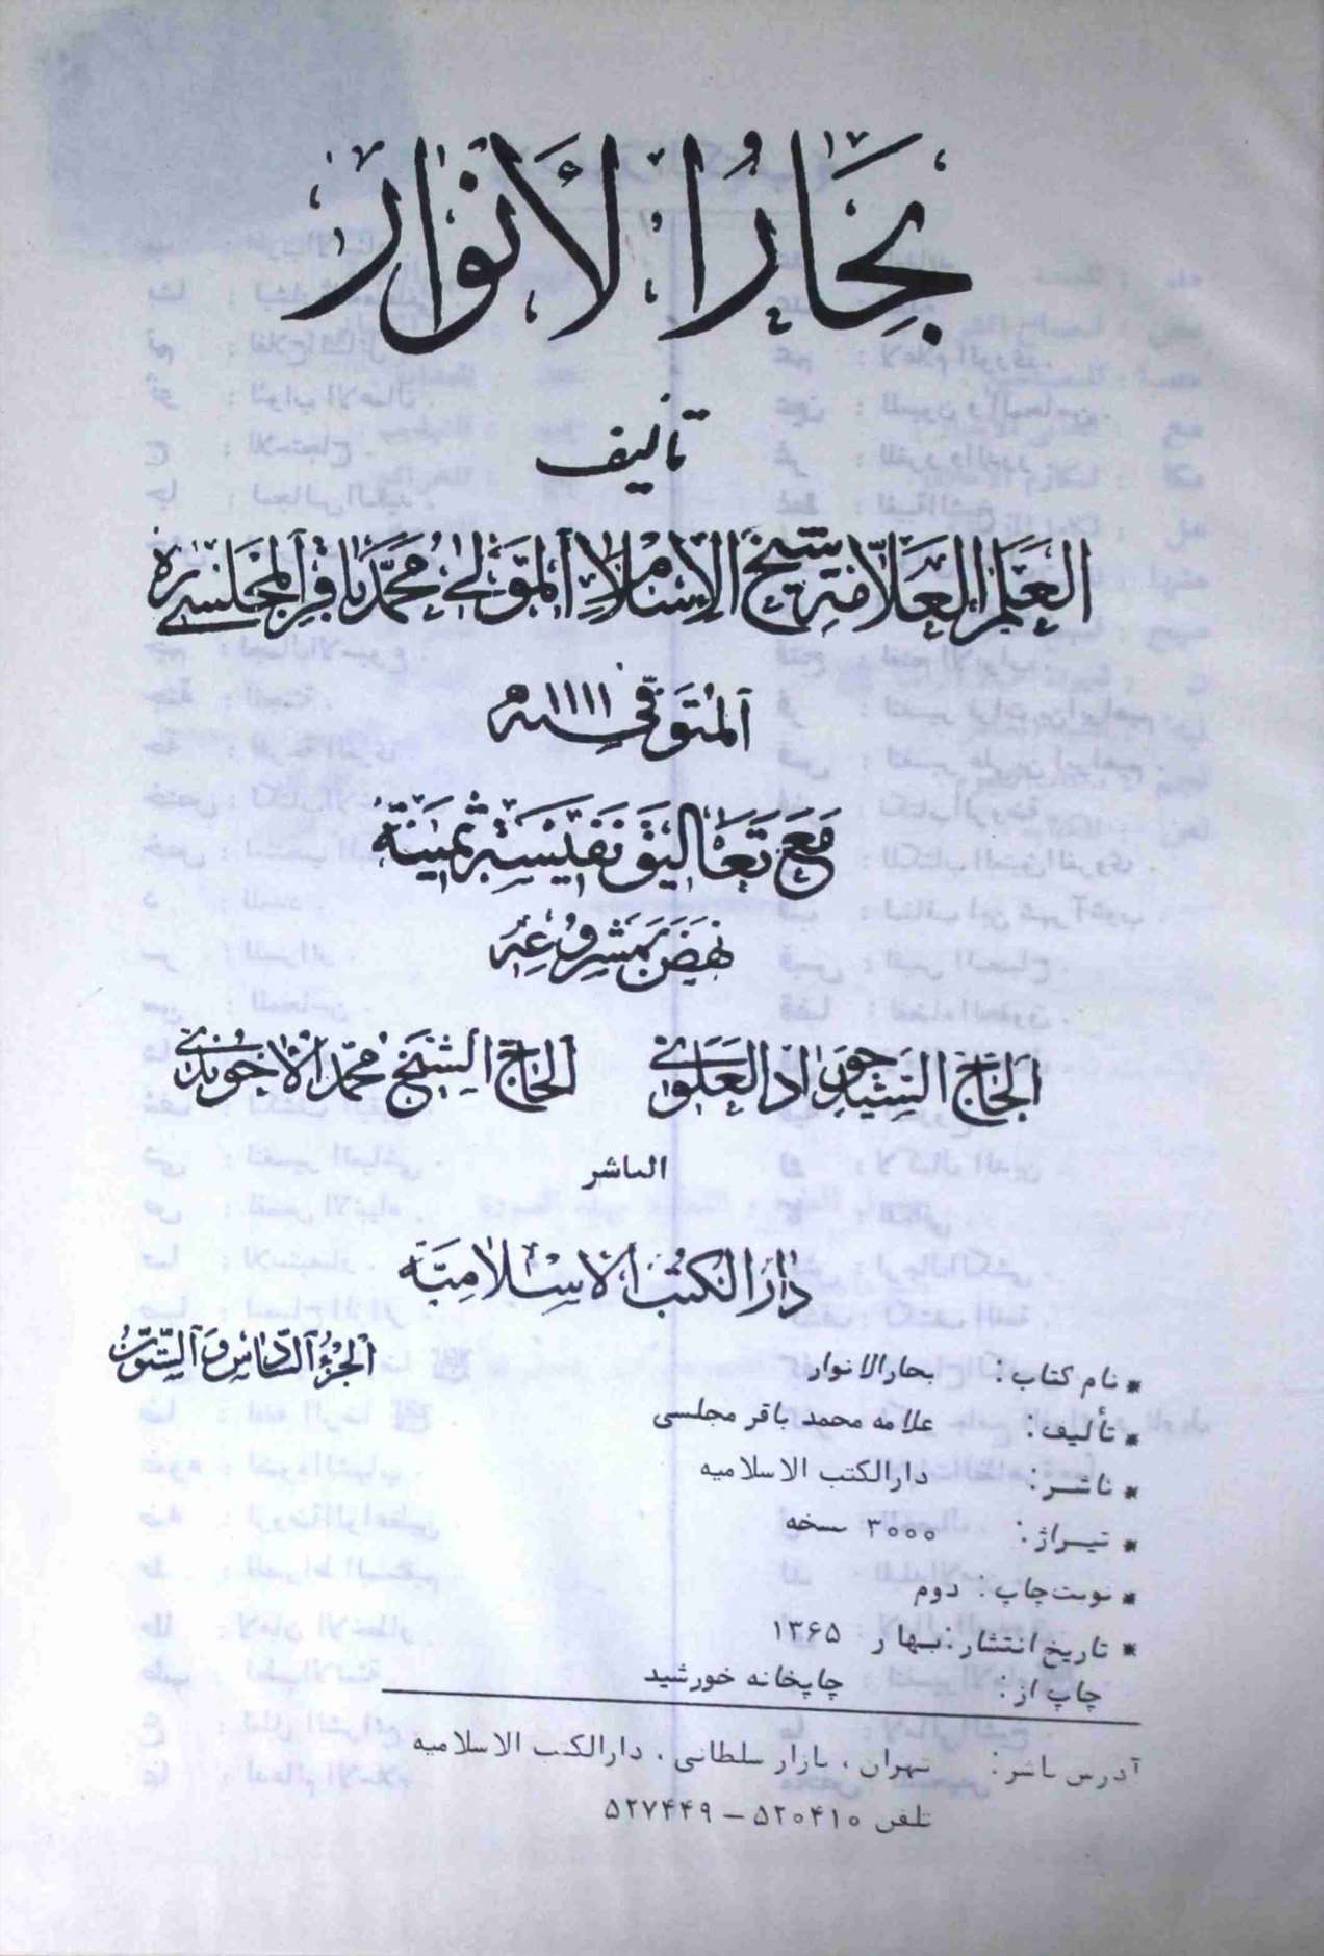 بِحَارُ الْأَنْوَارِ
تأليف
العَلَم العَلّامة شيخ الإسلام المولى محمّد باقر المجلسي قدّس سرّه
المُتَوَفّى سنه ۱۱۱۱ ه
مَعَ تَعَاليق نَفيسَة ثمينَة
نهَض بمَشروعِهِ
الحَاجّ السّيد جَوَاد العَلَوي    الحَاجّ الشيخ محمّد الآخوندي
الناشر
دَارُ الكتُب الاسْلاميّة
الجزءُ السّادس وَالسِّتّون
* نام کتاب: بحارالانوار
* تألیف: علامه محمد باقر مجلسی
* ناشر: دارالکتب الاسلامیه
* تیراژ: ۳۰۰۰ نسخه
* نوبت چاپ: دوم
* تاریخ انتشار: بهار ۱۳۶۵
چاپ از: چاپخانه خورشید
آدرس ناشر: تهران، بازار سلطانی، دارالکتب الاسلامیه
تلفن ۵۲۰۴۱۰ – ۵۲۷۴۴۹